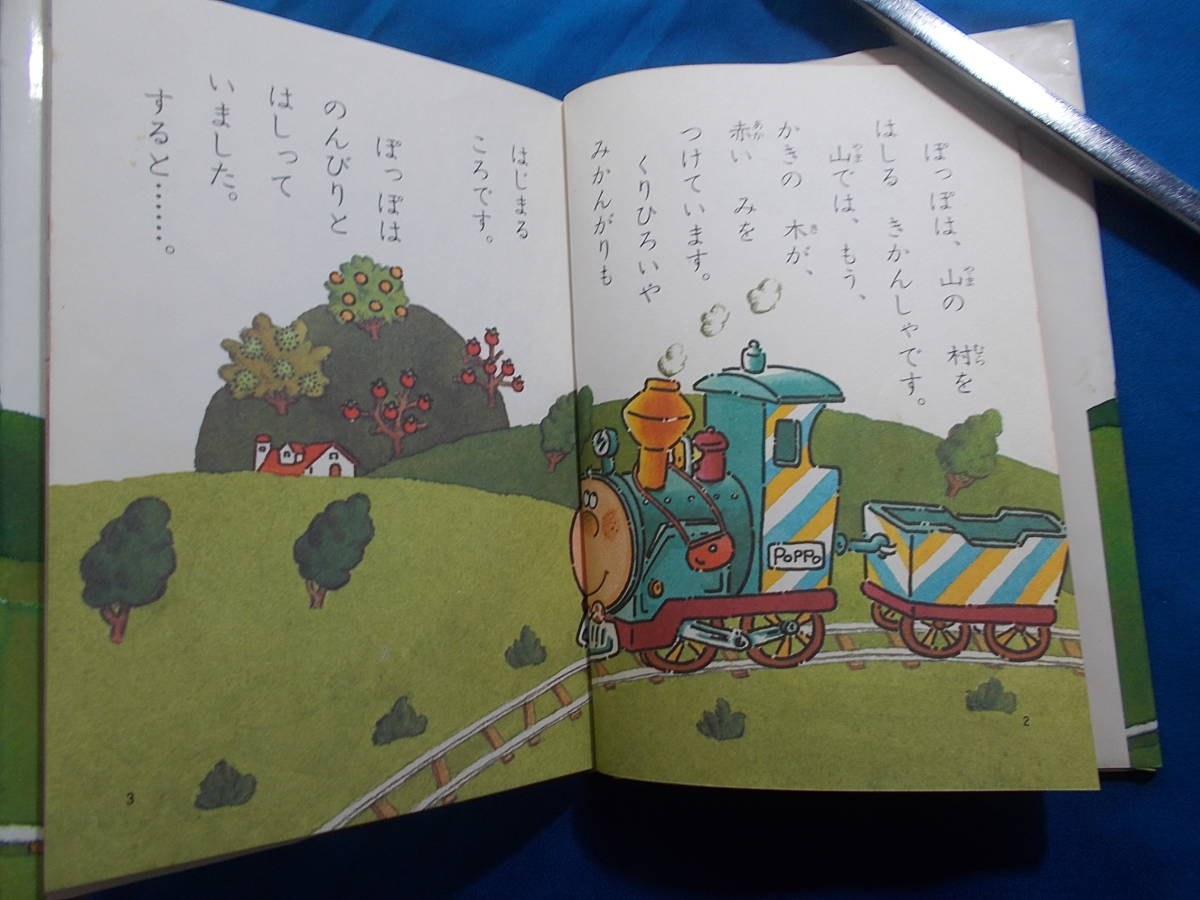 ぽっぽは、山の 村を
はしる きかんしゃです。
山では、もう、
かきの 木が、
赤い みを
つけています。
くりひろいや
みかんがりも
はじまる
ころです。
ぽっぽは
のんびりと
はしって
いました。
すると……。
POPPO
2
3